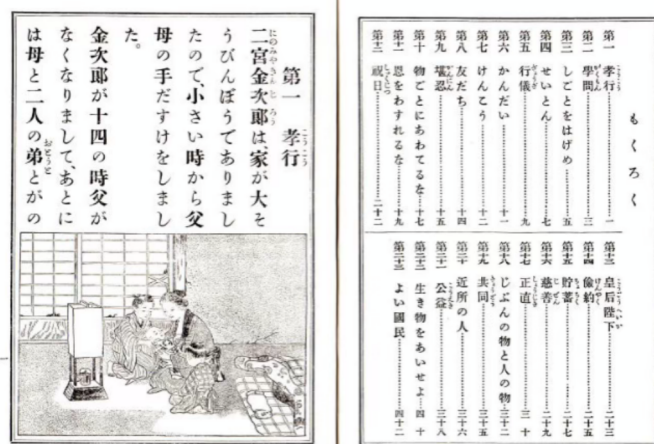 もくろく
第一 孝行 一
第二 學問 三
第三 しごとをはげめ 五
第四 せいとん 七
第五 行儀
第六 かんだい 十一
第七 けんこう 十二
第八 友だち 十四
第九 堪忍 十五
第十 物ごとにあわてるな 十七
第十一 恩をわすれるな 十九
第十二 祝日 二十二
第十三 皇后陛下 二十三
第十四 儉約 二十五
第十五 貯蓄 二十七
第十六 慈善 二十九
第十七 正直 三十
第十八 じぶんの物と人の物 三十二
第十九 共同 三十五
第二十 近所の人 三十六
第二十一 公益 三十八
第二十二 生き物をあいせよ 四十
第二十三 よい國民 四十二
第一 孝行
二宮金次郎は、家が大そ
うびんぼうでありまし
たので、小さい時から父
母の手だすけをしまし
た。
金次郎が十四の時父が
なくなりまして、あとに
は母と二人の弟とがの